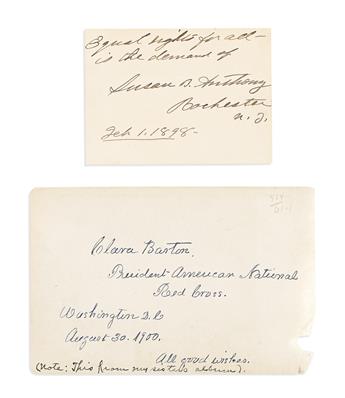 Equal rights for all -
is the demand of
Susan B. Anthony
Rochester
N.Y.
Feb 1. 1898 -
Clara Barton,
President American National
Red Cross.
Washington D.C
August 30. 1900.
All good wishes.
(Note: This from my sisters album).